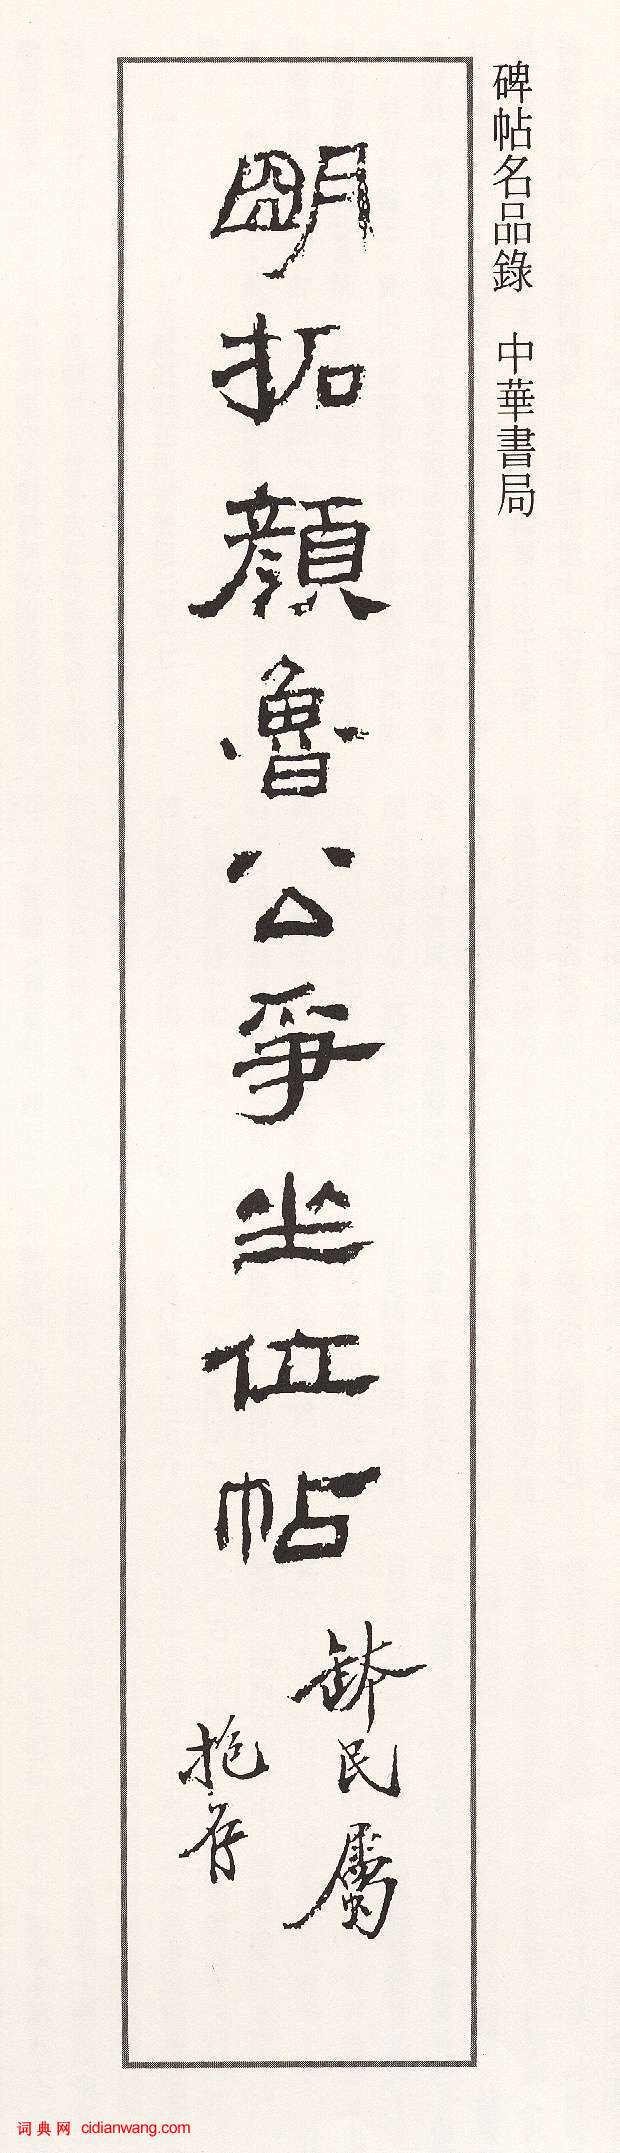 碑帖名品錄 中華書局
明拓顏魯公爭坐位帖
缽民屬
抱存
词典网 cidianwang.com